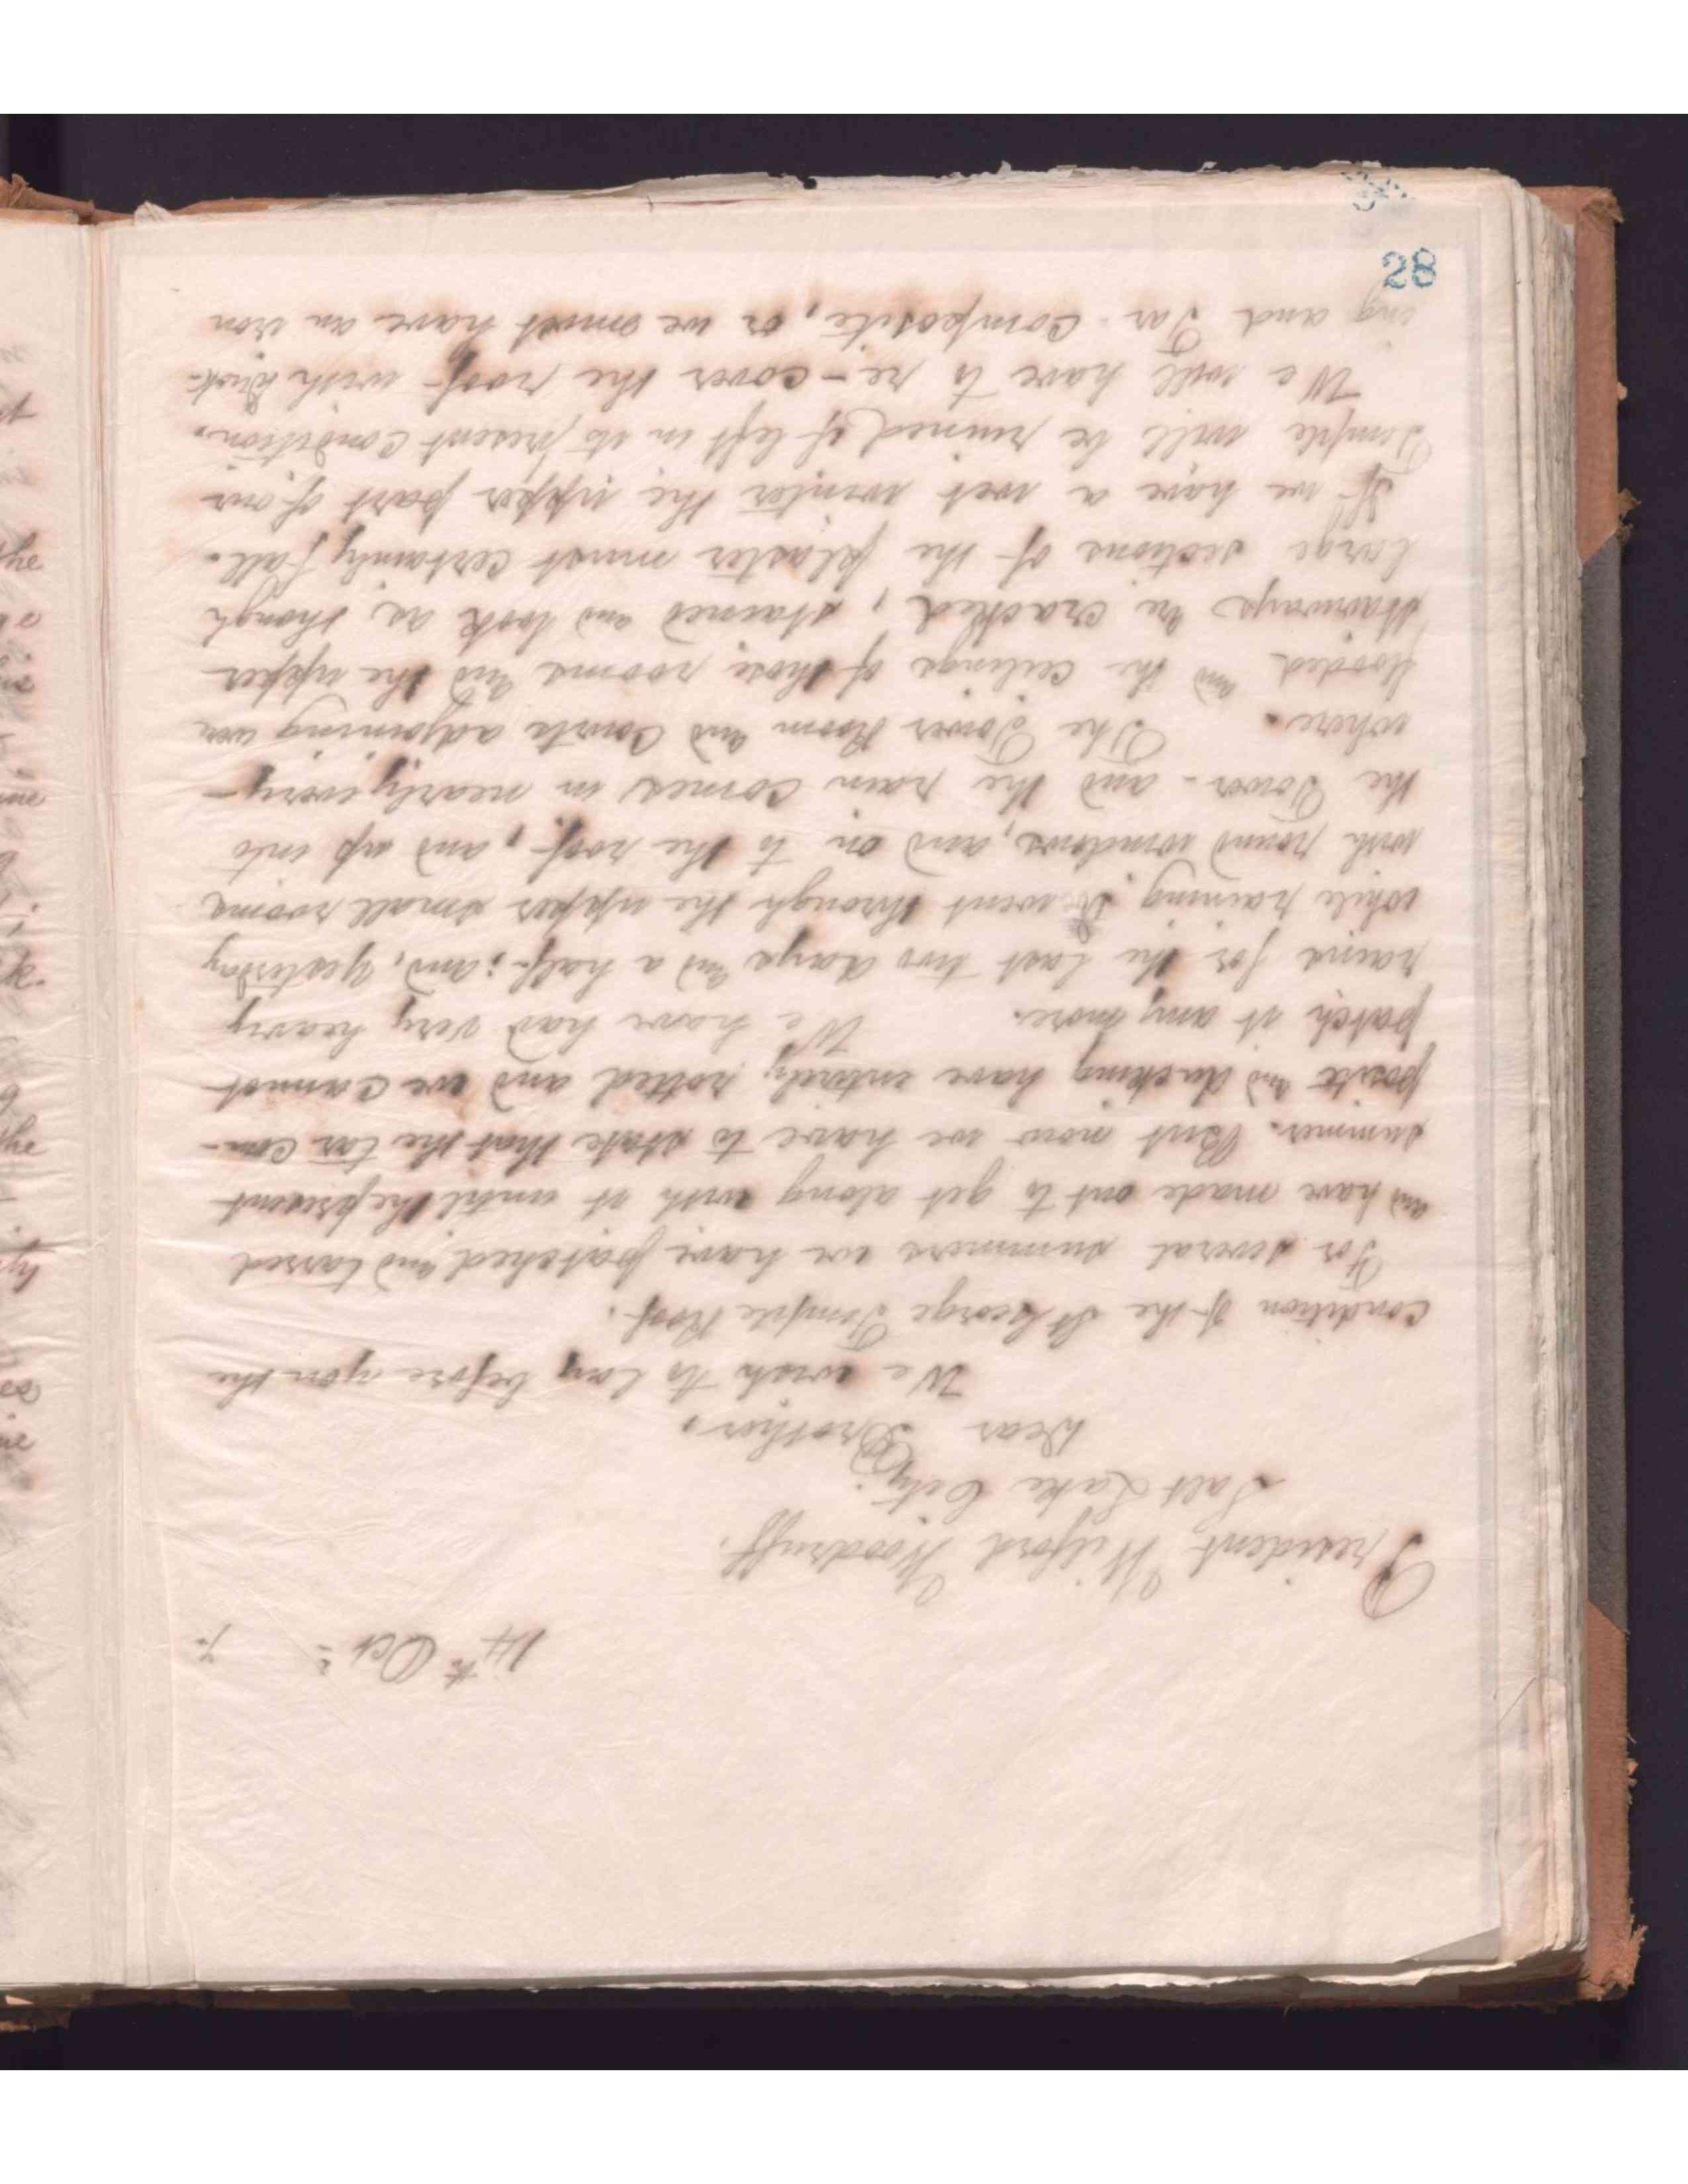 28
14th Oct 7.
President Wilford Woodruff.
Salt Lake City;
Dear Brother,
We wish to lay before you the
condition of the St George Temple Roof.
For several summers we have patched and tarred
and have made out to get along with it until the present
summer. But now we have to state that the tar com-
posite and ducking have entirely rotted and we cannot
patch it any more. We have had very heavy
rains for the last two days and a half; and, yesterday
while raining went through the upper small rooms
with round windows, and on to the roof, and up into
the Tower - and the rain comes in nearly every-
where. The Tower Room and Courts adjoining were
flooded and the ceilings of those rooms and the upper
stairways are cracked, stained and look as though
large sections of the plaster must certainly fall.
If we have a wet winter the upper part of our
Temple will be ruined if left in its present condition.
We will have to re-cover the roof with Duck-
ing and Tar-composite, or we must have an iron